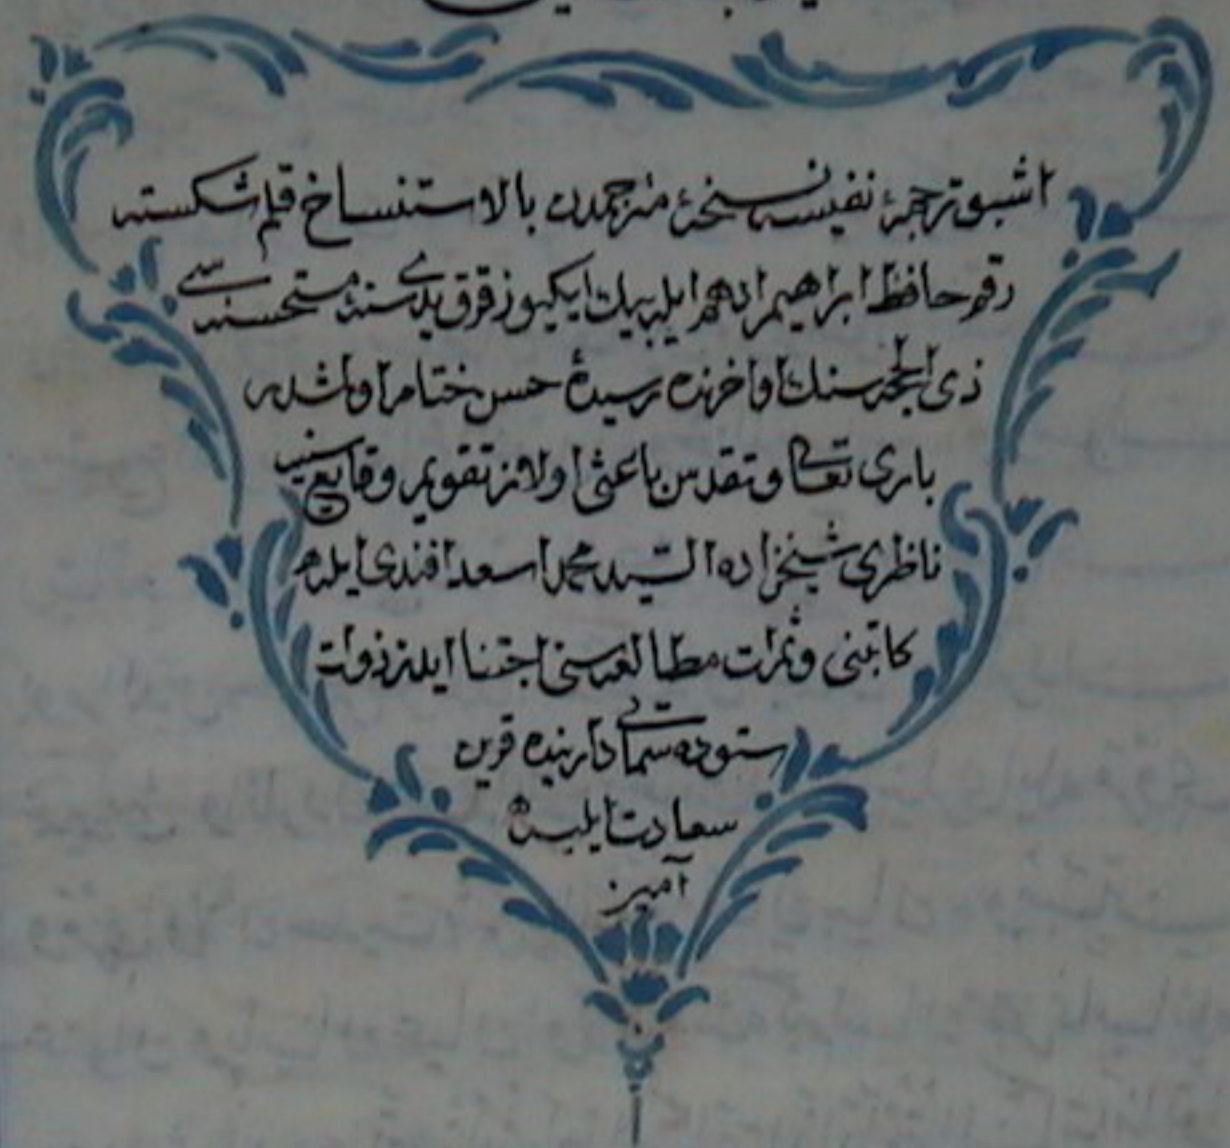 اشبو ترجمهٔ نفیسه نسخهٔ مترجمدن بالاستنساخ قلم شکسته
رقم حافظ ابراهیم ادهم ایله بیك ایکیوز قرق یدی سنهٔ مستحسنه سی
ذی الحجه سنك اواخرنده رسیدهٔ حسن ختام اولشدر
باری تعالی و تقدس باعثی اولان تقویم وقایع
ناظری شیخزاده السید محمد اسعد افندی ایله
کاتبنی و ثمرات مطالعه سنی اجتنا ایلین ذوات
ستوده سماتی دارینده قرین
سعادت ایلیه
آمین